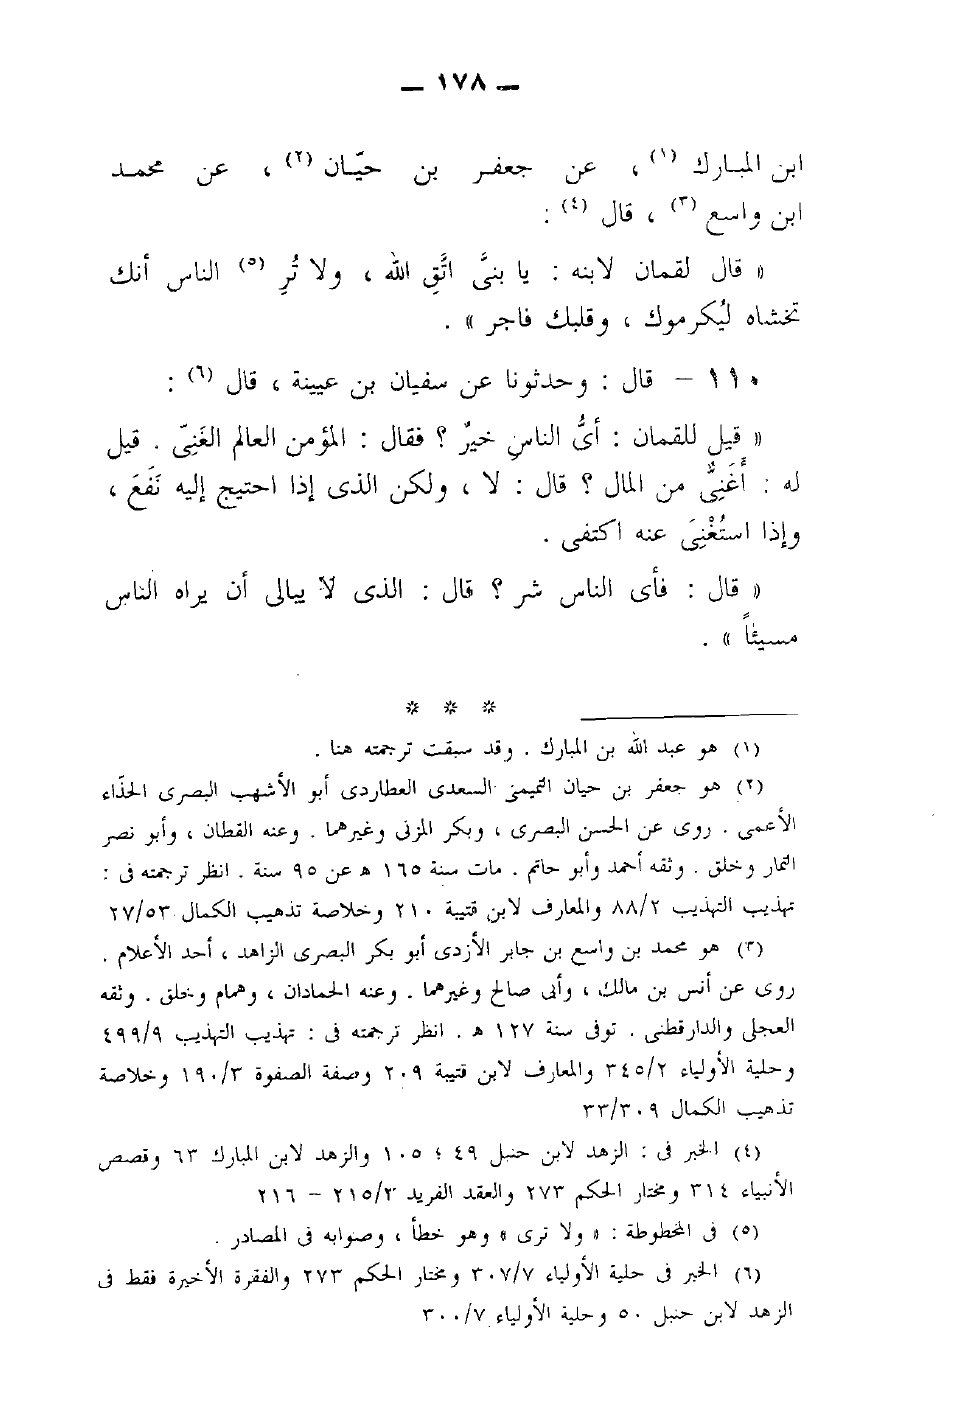 — ١٧٨ —
ابن المبارك (١) ، عن جعفر بن حيّان (٢) ، عن محمد
ابن واسع (٣) ، قال (٤) :
« قال لقمان لابنه : يا بنىَّ اتَّقِ الله ، ولا تُرِ (٥) الناس أنك
تخشاه ليُكرموك ، وقلبك فاجر » .
١١٠ – قال : وحدثونا عن سفيان بن عيينة ، قال (٦) :
« قيل للقمان : أىُّ الناسِ خيرٌ ؟ فقال : المؤمن العالم الغَنِىّ . قيل
له : أَغَنِىٌّ من المال ؟ قال : لا ، ولكن الذى إذا احتيج إليه نَفَعَ ،
وإذا استُغْنِىَ عنه اكتفى .
« قال : فأى الناس شر ؟ قال : الذى لا يبالى أن يراه الناس
مسيئاً » .
* * *
(١) هو عبد الله بن المبارك . وقد سبقت ترجمته هنا .
(٢) هو جعفر بن حيان التميمى السعدى العطاردى أبو الأشهب البصرى الحذّاء
الأعمى . روى عن الحسن البصرى ، وبكر المزنى وغيرهما . وعنه القطان ، وأبو نصر
التمار وخلق . وثقه أحمد وأبو حاتم . مات سنة ١٦٥ ه عن ٩٥ سنة . انظر ترجمته فى :
تهذيب التهذيب ٨٨/٢ والمعارف لابن قتيبة ٢١٠ وخلاصة تذهيب الكمال ٢٧/٥٣
(٣) هو محمد بن واسع بن جابر الأزدى أبو بكر البصرى الزاهد ، أحد الأعلام .
روى عن أنس بن مالك ، وأبى صالح وغيرهما . وعنه الحمادان ، وهمام وخلق . وثقه
العجلى والدارقطنى . توفى سنة ١٢٧ ه . انظر ترجمته فى : تهذيب التهذيب ٤٩٩/٩
وحلية الأولياء ٣٤٥/٢ والمعارف لابن قتيبة ٢٠٩ وصفة الصفوة ١٩٠/٣ وخلاصة
تذهيب الكمال ٣٣/٣٠٩
(٤) الخبر فى : الزهد لابن حنبل ٤٩ ؛ ١٠٥ والزهد لابن المبارك ٦٣ وقصص
الأنبياء ٣١٤ ومختار الحكم ٢٧٣ والعقد الفريد ٢١٥/٢ – ٢١٦
(٥) فى المخطوطة : « ولا ترى » وهو خطأ ، وصوابه فى المصادر .
(٦) الخبر فى حلية الأولياء ٣٠٧/٧ ومختار الحكم ٢٧٣ والفقرة الأخيرة فقط فى
الزهد لابن حنبل ٥٠ وحلية الأولياء ٣٠٠/٧